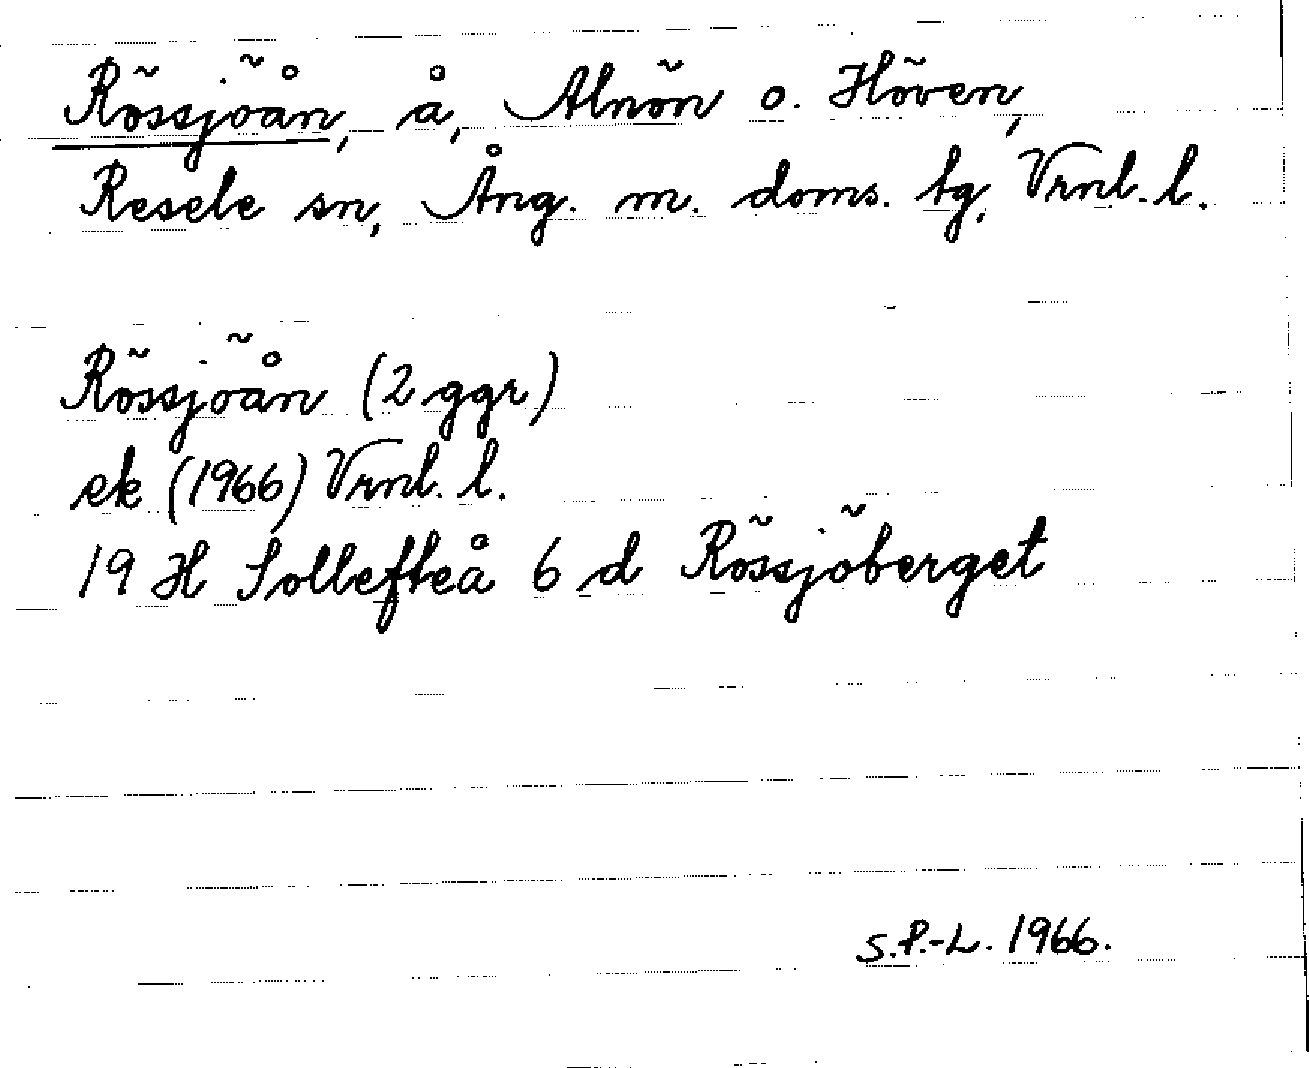 Rössjöån, å, Alnön o. Höven,
Resele sn, Ång. m. doms. tg, Vrnl. l.
Rössjöån (2 ggr)
ek (1966) Vrnl. l.
19 H Sollefteå 6 d Rössjöberget
S.P.-L. 1966.